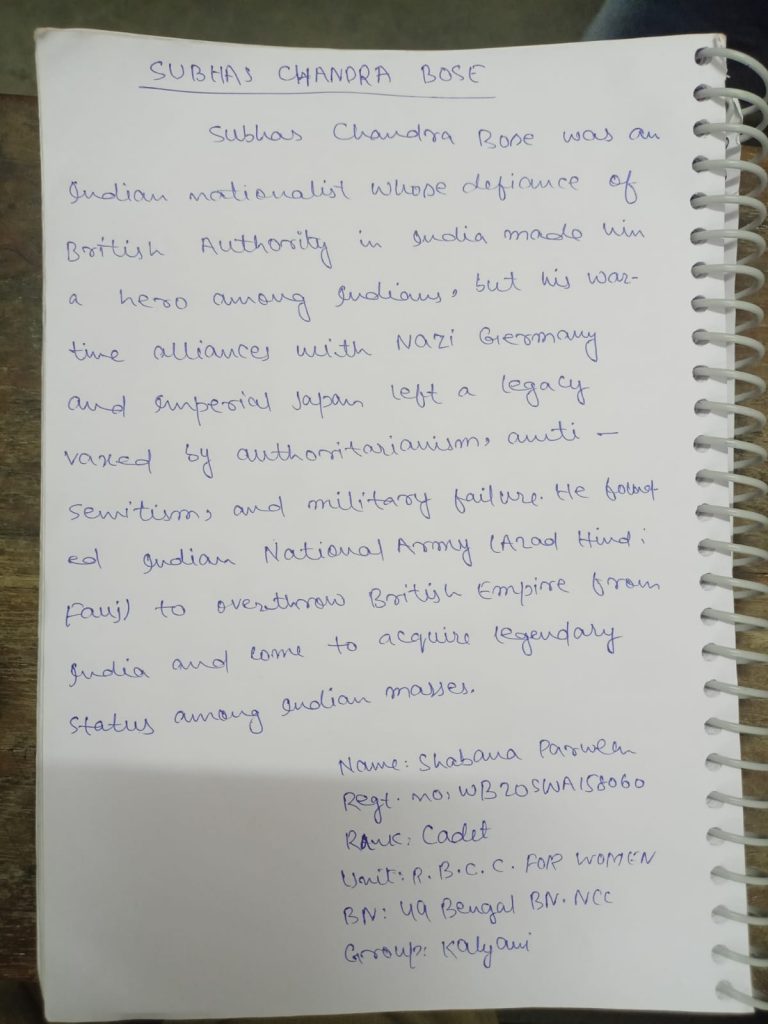 SUBHAS CHANDRA BOSE
Subhas Chandra Bose was an
Indian nationalist whose defiance of
British Authority in India made him
a hero among Indians, but his war-
time alliances with Nazi Germany
and Imperial Japan left a legacy
vaxed by authoritarianism, anti -
semitism, and military failure. He found
ed Indian National Army (Azad Hind
Fauj) to overthrow British Empire from
India and come to acquire legendary
status among Indian masses.
Name: Shabana Parween
Regt. no: WB20SWA158060
Rank: Cadet
Unit: R.B.C.C. FOR WOMEN
BN: 49 Bengal BN. NCC
Group: Kalyani